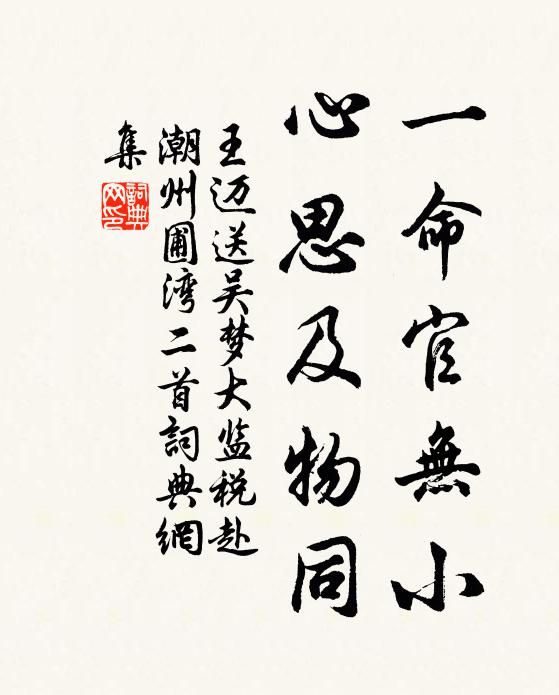 一命官無小
心思及物同
王迈送吴梦大监税赴
潮州圃湾二首詞典網
集
詞典
网印